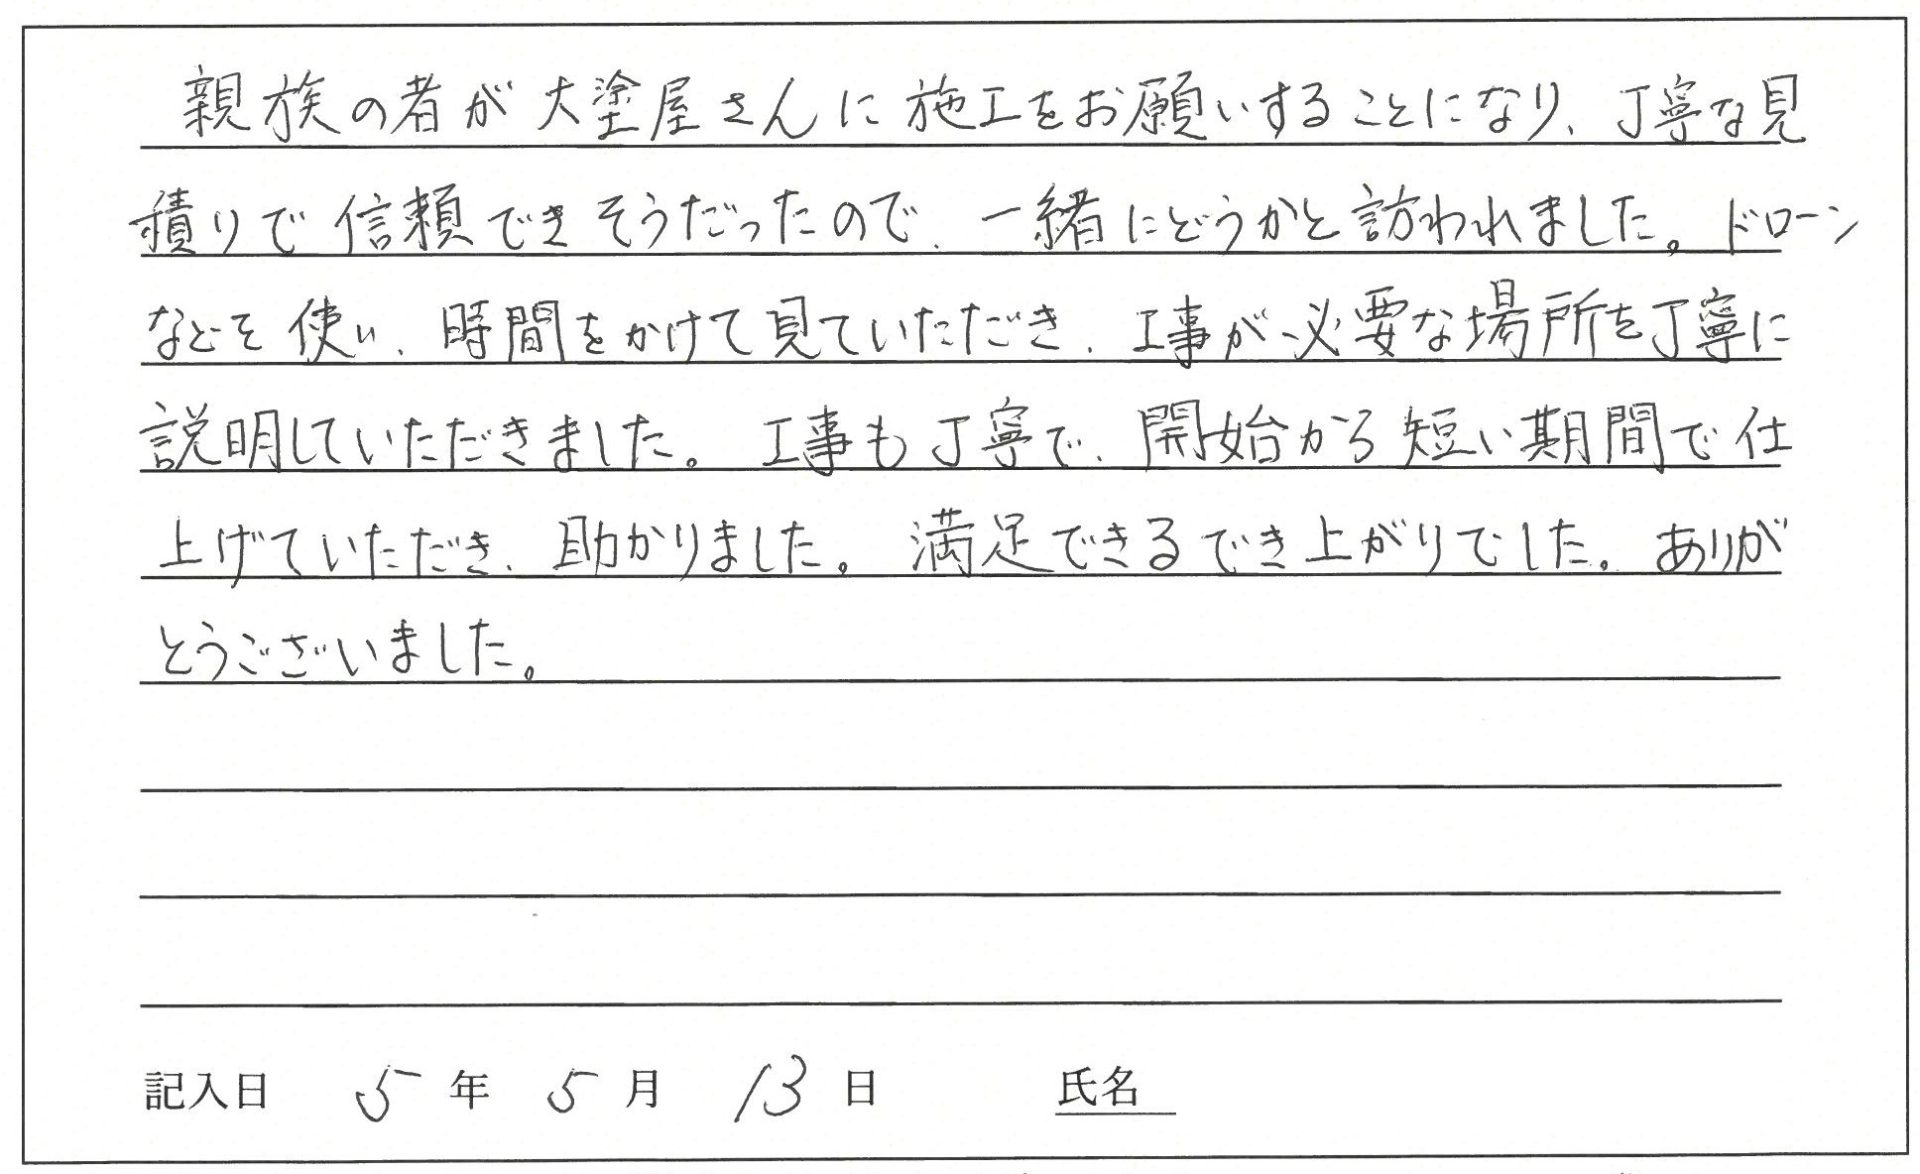 親族の者が大塗屋さんに施工をお願いすることになり、丁寧な見
積りで信頼できそうだったので、一緒にどうかと訪われました。ドローン
などを使い、時間をかけて見ていただき、工事が必要な場所を丁寧に
説明していただきました。工事も丁寧で、開始から短い期間で仕
上げていただき、助かりました。満足できるでき上がりでした。ありが
とうございました。
記入日 5年 5月 13日 氏名